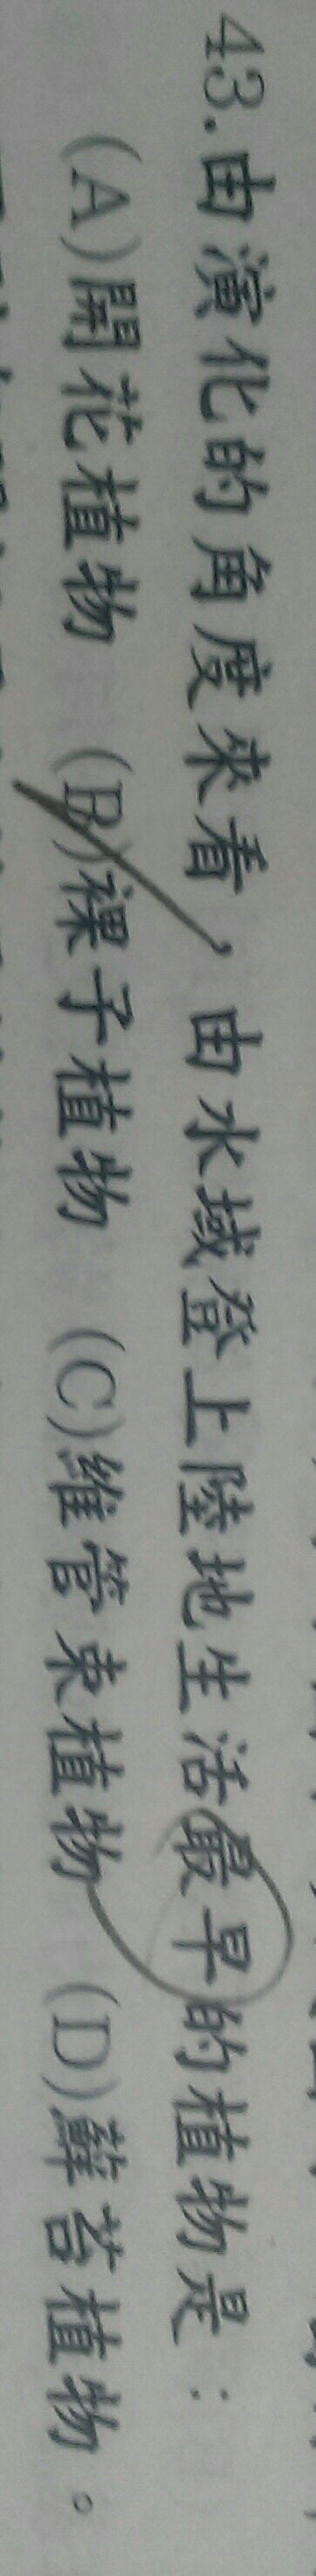 43.由演化的角度來看，由水域登上陸地生活最早的植物是：
(A)開花植物 (B)裸子植物 (C)維管束植物 (D)蘚苔植物。